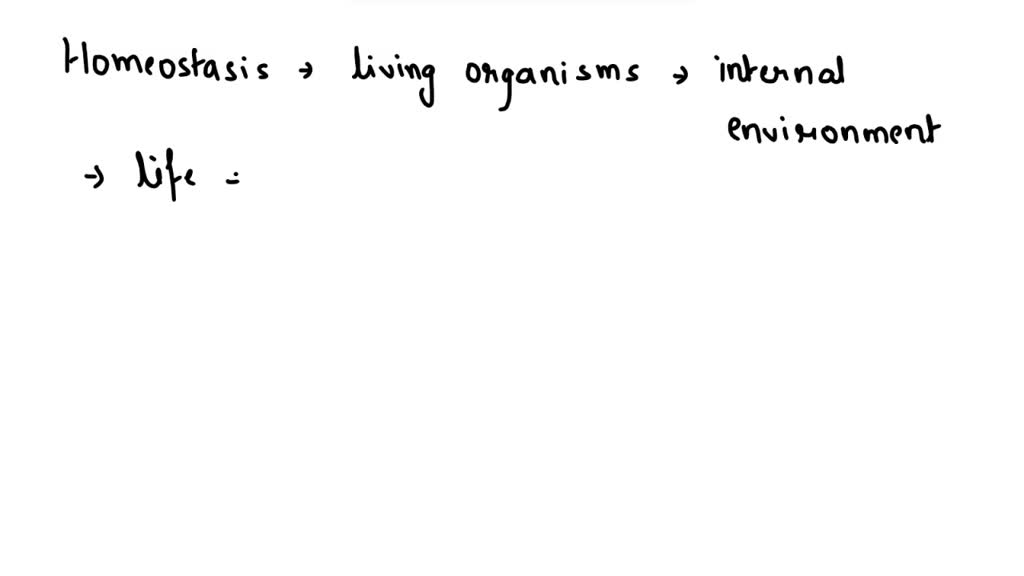 Homeostasis → living organisms → internal
environment
→ life =